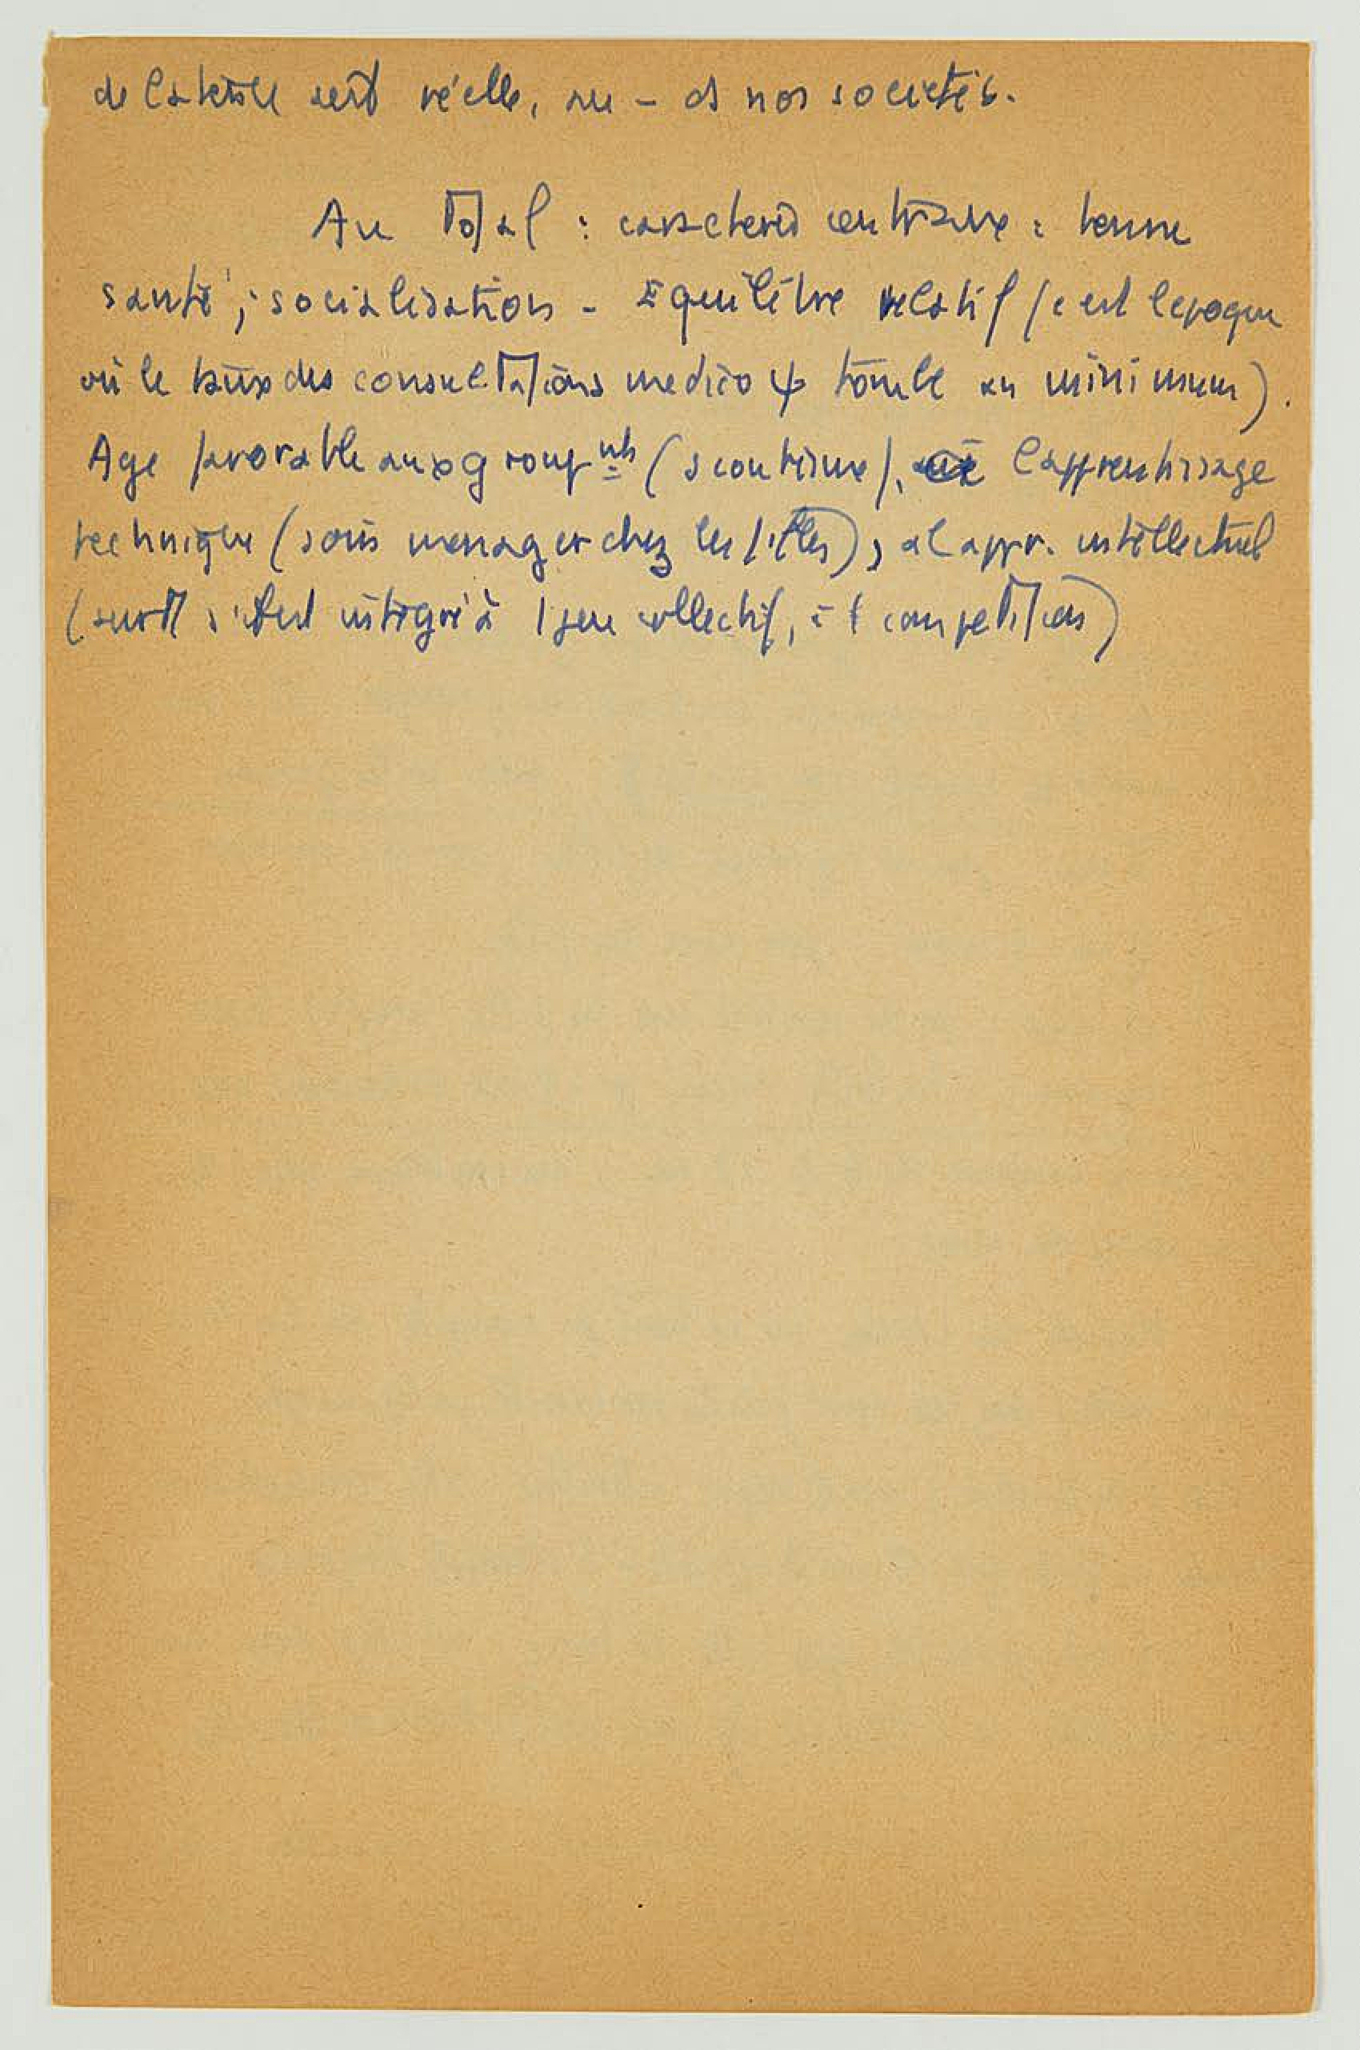 de latence soit réelle, au - ds nos sociétés.
Au total : caractères centraux : bonne
santé ; socialisation - Equilibre relatif (c'est l'époque
où le taux des consultations medico ψ tombe au minimum).
Age favorable aux groupnts (scoutisme), l'apprentissage
technique (soins menager chez les filles), a l'appr. intellectuel
(surtt s'il est intégré à 1 jeu collectif, à 1 competition)